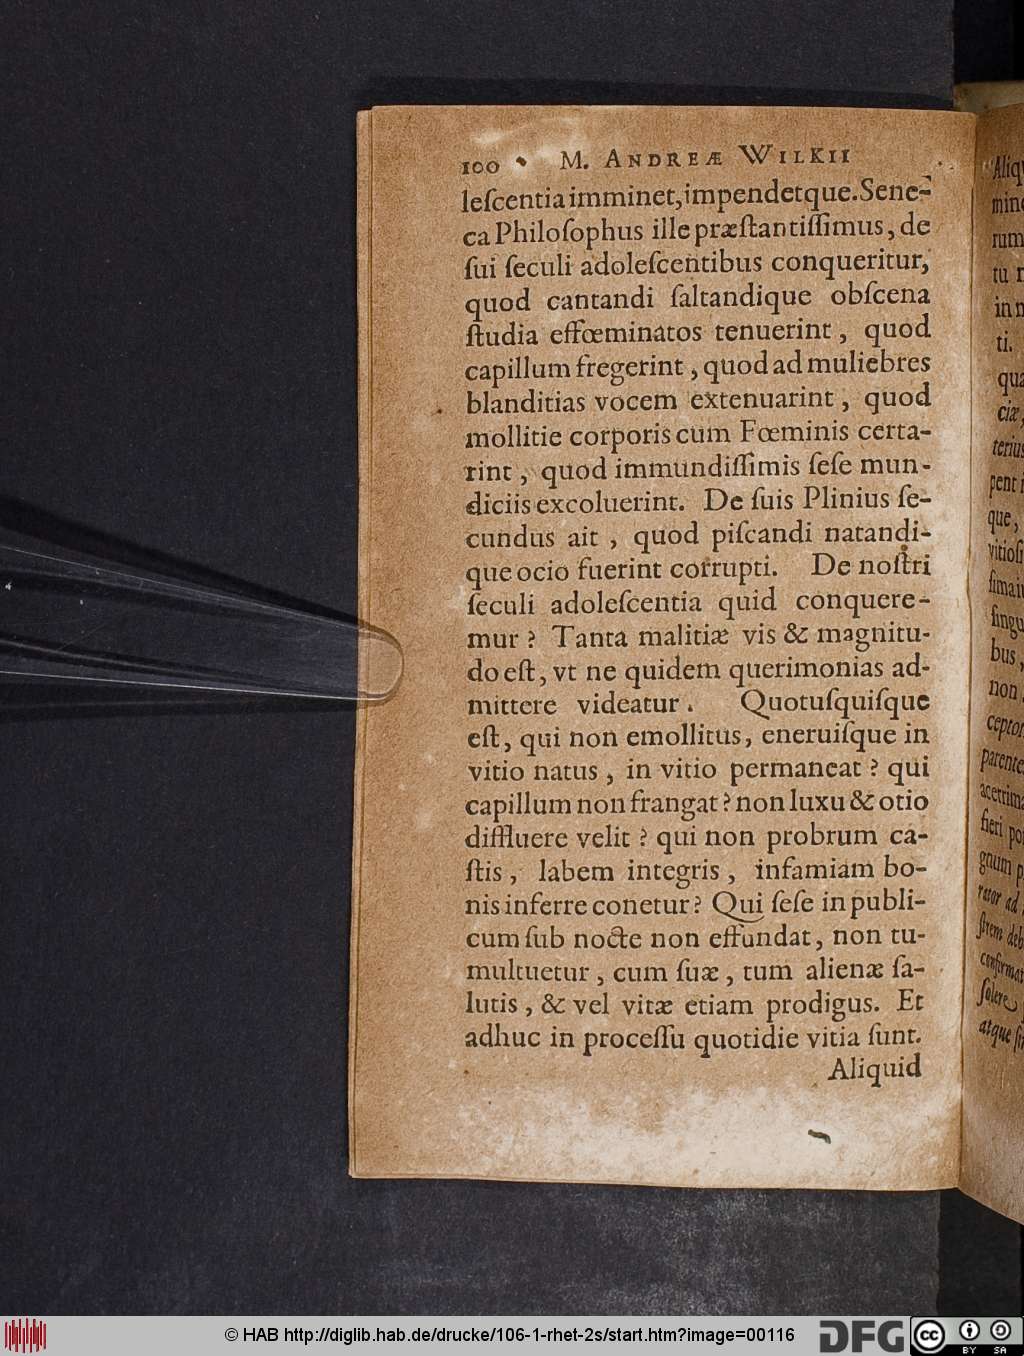 100 M. ANDREÆ WILKII
leſcentia imminet, impendetque. Sene-
ca Philoſophus ille præſtantiſſimus, de
ſui ſeculi adoleſcentibus conqueritur,
quod cantandi ſaltandique obſcena
ſtudia effœminatos tenuerint, quod
capillum fregerint, quod ad muliebres
blanditias vocem extenuarint, quod
mollitie corporis cum Fœminis certa-
rint, quod immundiſſimis ſeſe mun-
diciis excoluerint. De ſuis Plinius ſe-
cundus ait, quod piſcandi natandi-
que ocio fuerint corrupti. De noſtri
ſeculi adoleſcentia quid conquere-
mur? Tanta malitiæ vis & magnitu-
do eſt, vt ne quidem querimonias ad-
mittere videatur. Quotuſquiſque
eſt, qui non emollitus, eneruiſque in
vitio natus, in vitio permaneat? qui
capillum non frangat? non luxu & otio
diffluere velit? qui non probrum ca-
ſtis, labem integris, infamiam bo-
nis inferre conetur? Qui ſeſe in publi-
cum ſub nocte non effundat, non tu-
multuetur, cum ſuæ, tum alienæ ſa-
lutis, & vel vitæ etiam prodigus. Et
adhuc in proceſſu quotidie vitia ſunt.
Aliquid
© HAB http://diglib.hab.de/drucke/106-1-rhet-2s/start.htm?image=00116
DFG
cc BY SA